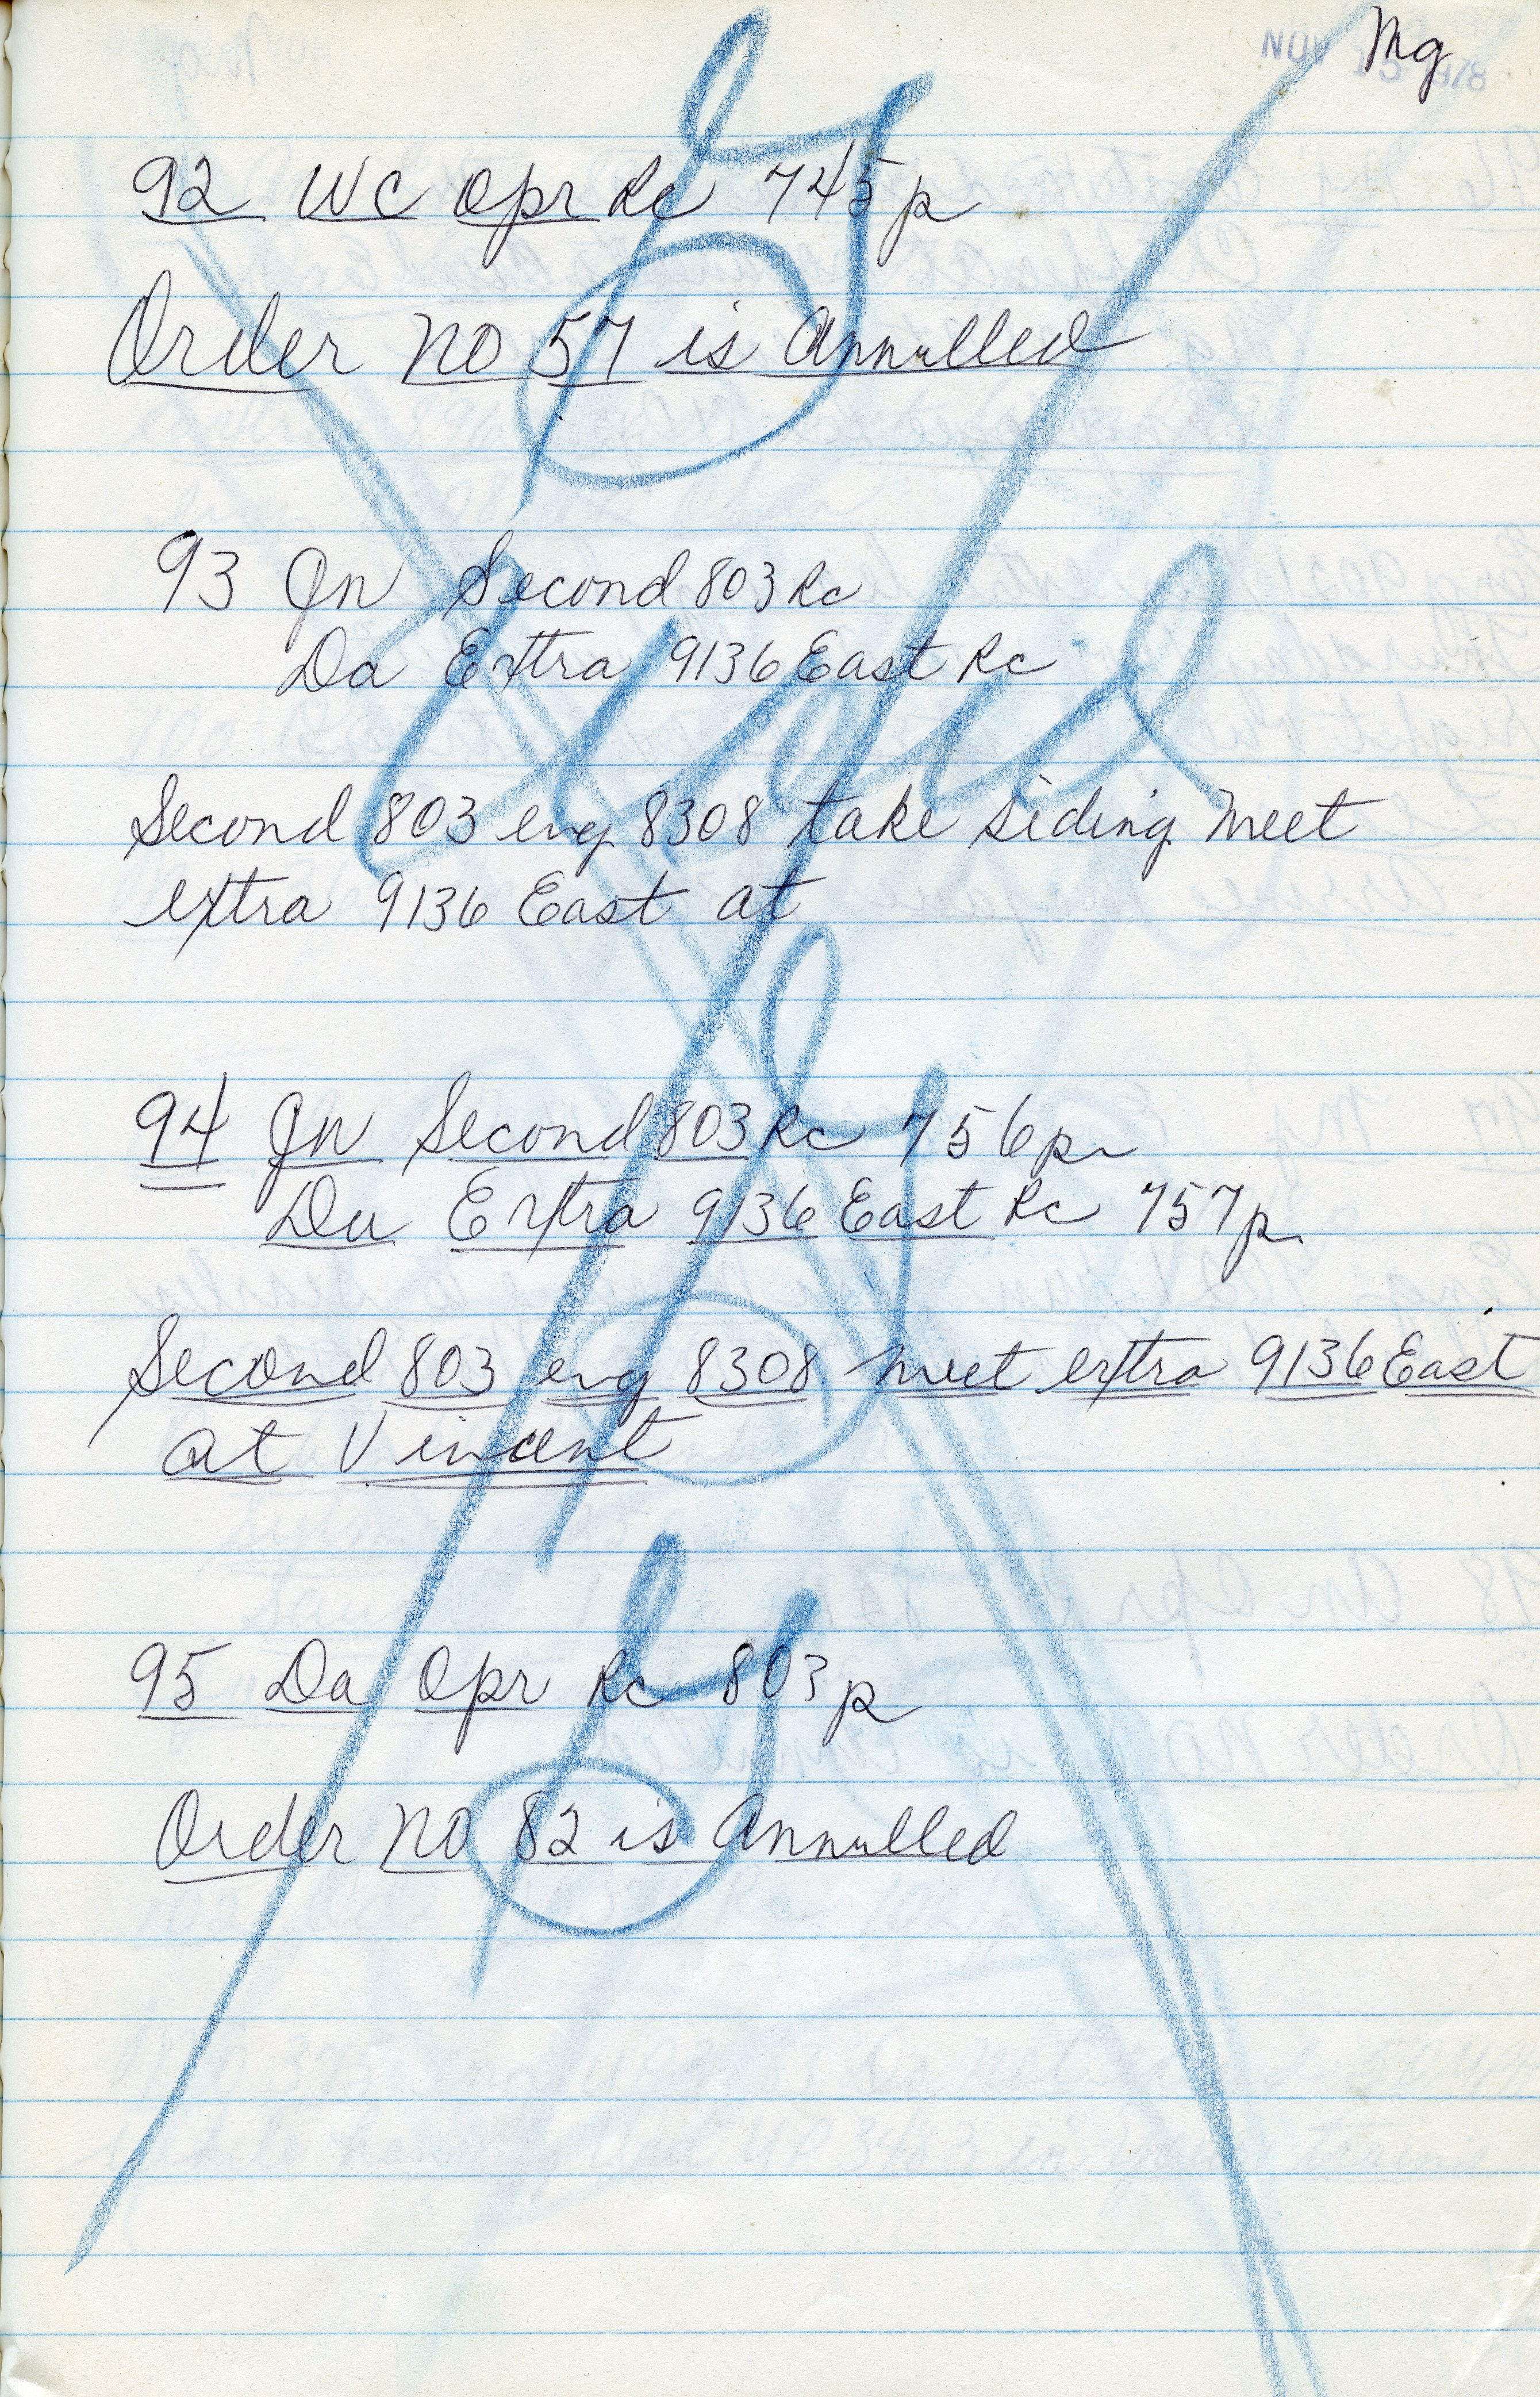 NOV 15 1978
Mg
92 WC Opr Rc 745p
Order No 57 is Annulled
93 Jn Second 803 Rc
Da Extra 9136 East Rc
Void
Second 803 eng 8308 take siding meet
extra 9136 East at
94 Jn Second 803 Rc 756p
Da Extra 9136 East Rc 757p
Second 803 eng 8308 meet extra 9136 East
at Vincent
95 Da Opr Rc 803p
Order No 82 is Annulled